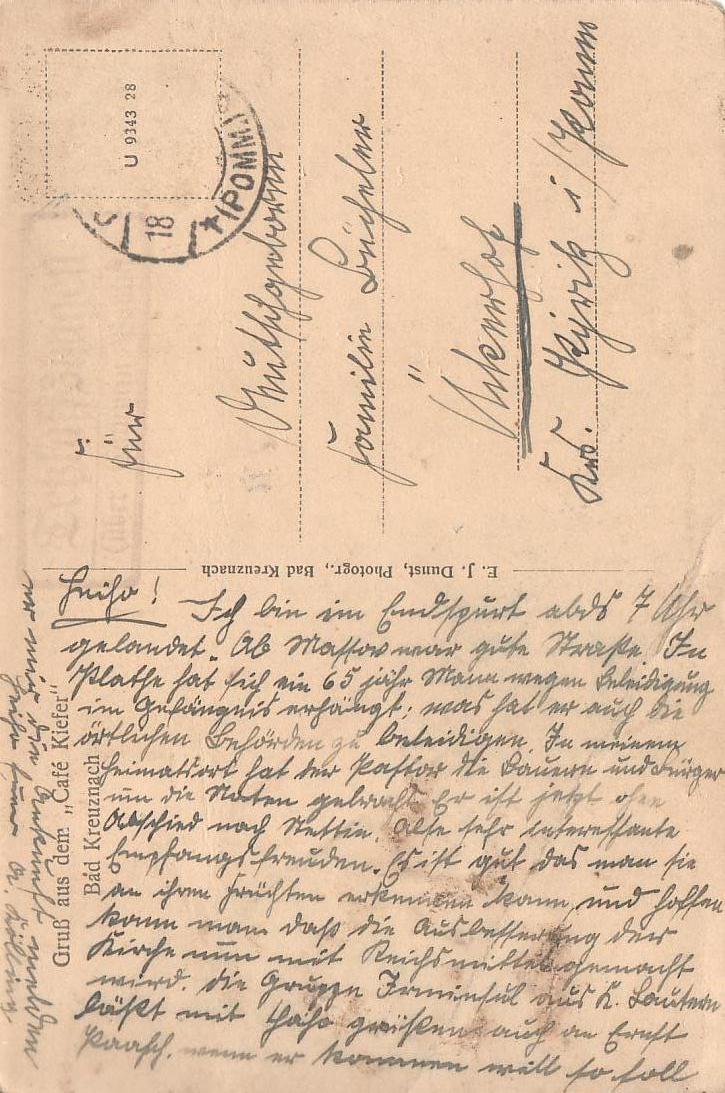 U 9343 28
18
*(POMM.)
Für
Familie Bücheler
Ükerhof
Krs. Pyritz i/Pomm
E. J. Dunst, Photogr., Bad Kreuznach
Gruß aus dem „Café Kiefer"
Bad Kreuznach
! Ich bin im Endspurt abds 7 Uhr
gelandet. Ab Massow war gute Straße. In
Plathe hat sich ein 65 jähr Mann wegen Beleidigung
im Gefängnis erhängt; was hat er auch die
örtlichen Behörden zu beleidigen. In meinem
Heimatsort hat der Pastor die Bauern und Bürger
um die Noten gebracht. Er ist jetzt ohne
Abschied nach Stettin. Also sehr interessante
Empfangsfreuden. Es ist gut das man sie
an ihren Früchten erkennen kann, und hoffen
kann man daß die Ausbesserung der
Kirche nun mit Reichsmittel gemacht
wird. Die Gruppe Irminsul aus K. Lautern
läßt mit grüßen auch an Ernst
Paasch. wenn er kommen will so soll
er mir die Ankunft melden